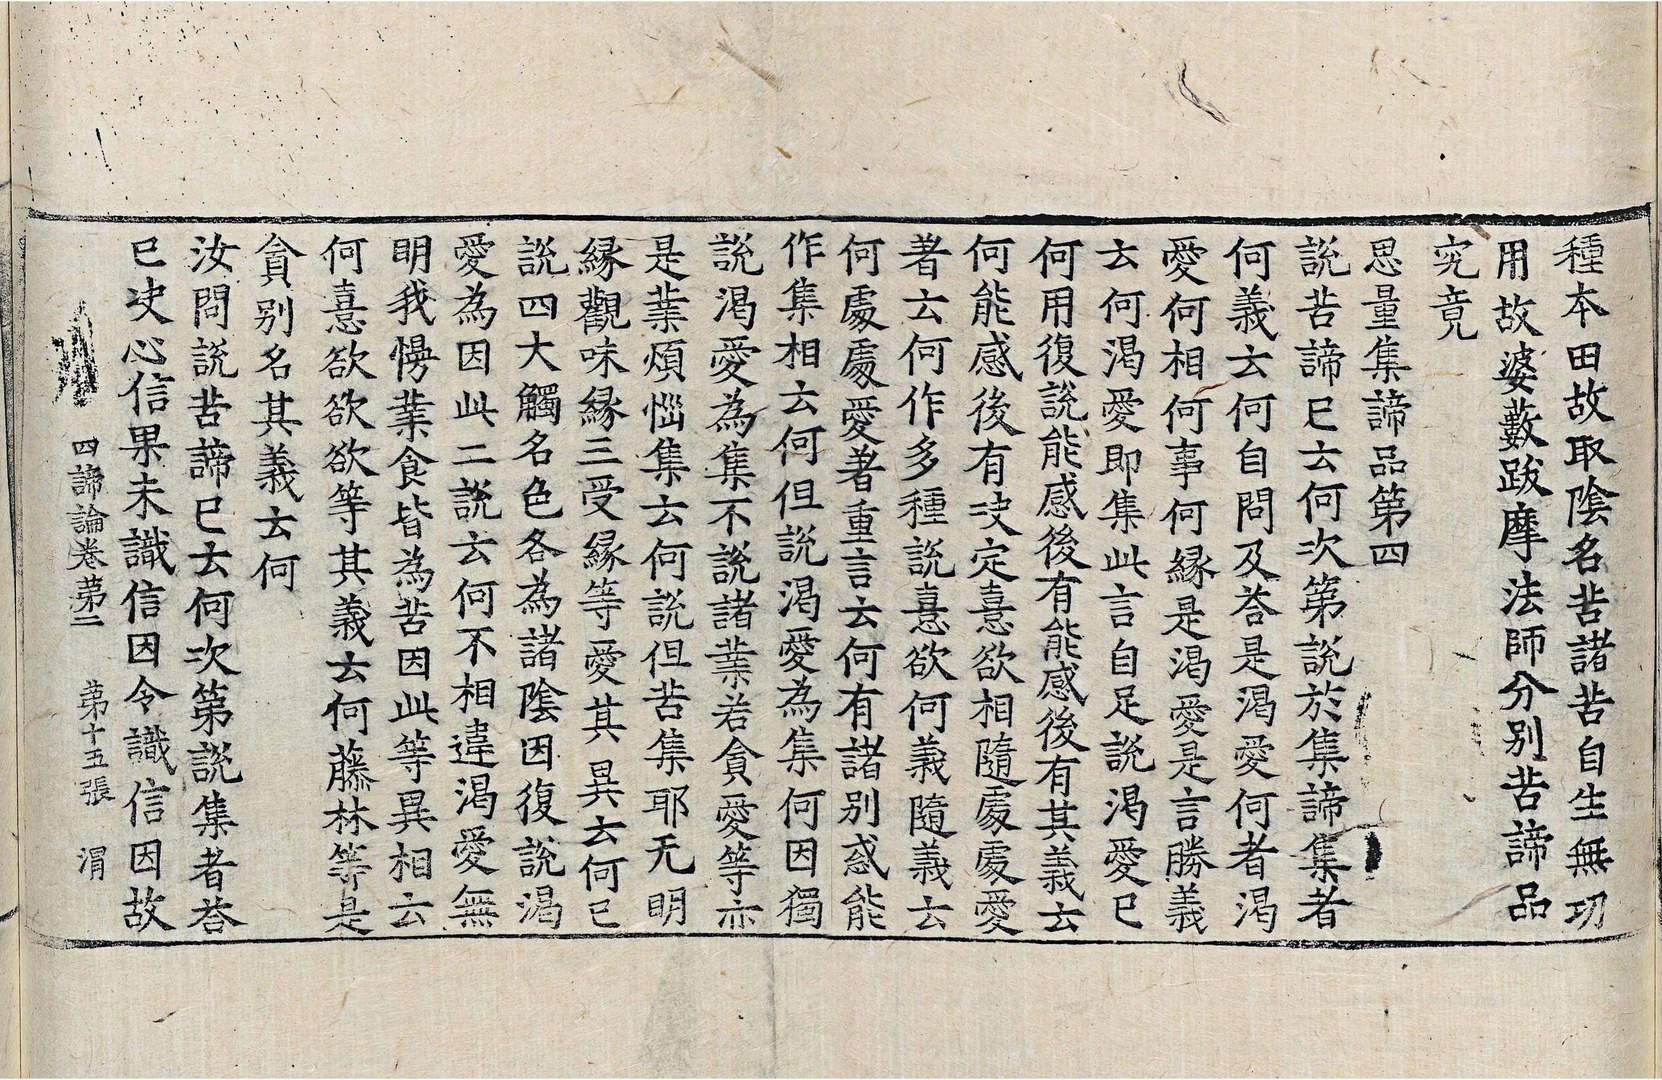 種本田故取陰名苦諸苦自生無功
用故婆藪跋摩法師分別苦諦品
究竟
思量集諦品第四
說苦諦已云何次第說於集諦集者
何義云何自問及荅是渴愛何者渴
愛何相何事何緣是渴愛是言勝義
云何渴愛即集此言自足說渴愛已
何用復說能感後有能感後有其義云
何能感後有決定憙欲相隨處處愛
著云何作多種說憙欲何義隨義云
何處處愛著重言云何有諸別惑能
作集相云何但說渴愛為集何因獨
說渴愛為集不說諸業若貪愛等亦
是業煩惱集云何說但苦集耶无明
緣觀味緣三受緣等愛其異云何已
說四大觸名色各為諸陰因復說渴
愛為因此二說云何不相違渴愛無
明我慢業食皆為苦因此等異相云
何憙欲欲欲等其義云何藤林等是
貪別名其義云何
汝問說苦諦已云何次第說集者荅
已決心信果未識信因令識信因故
四諦論卷苐二　苐十五張　渭